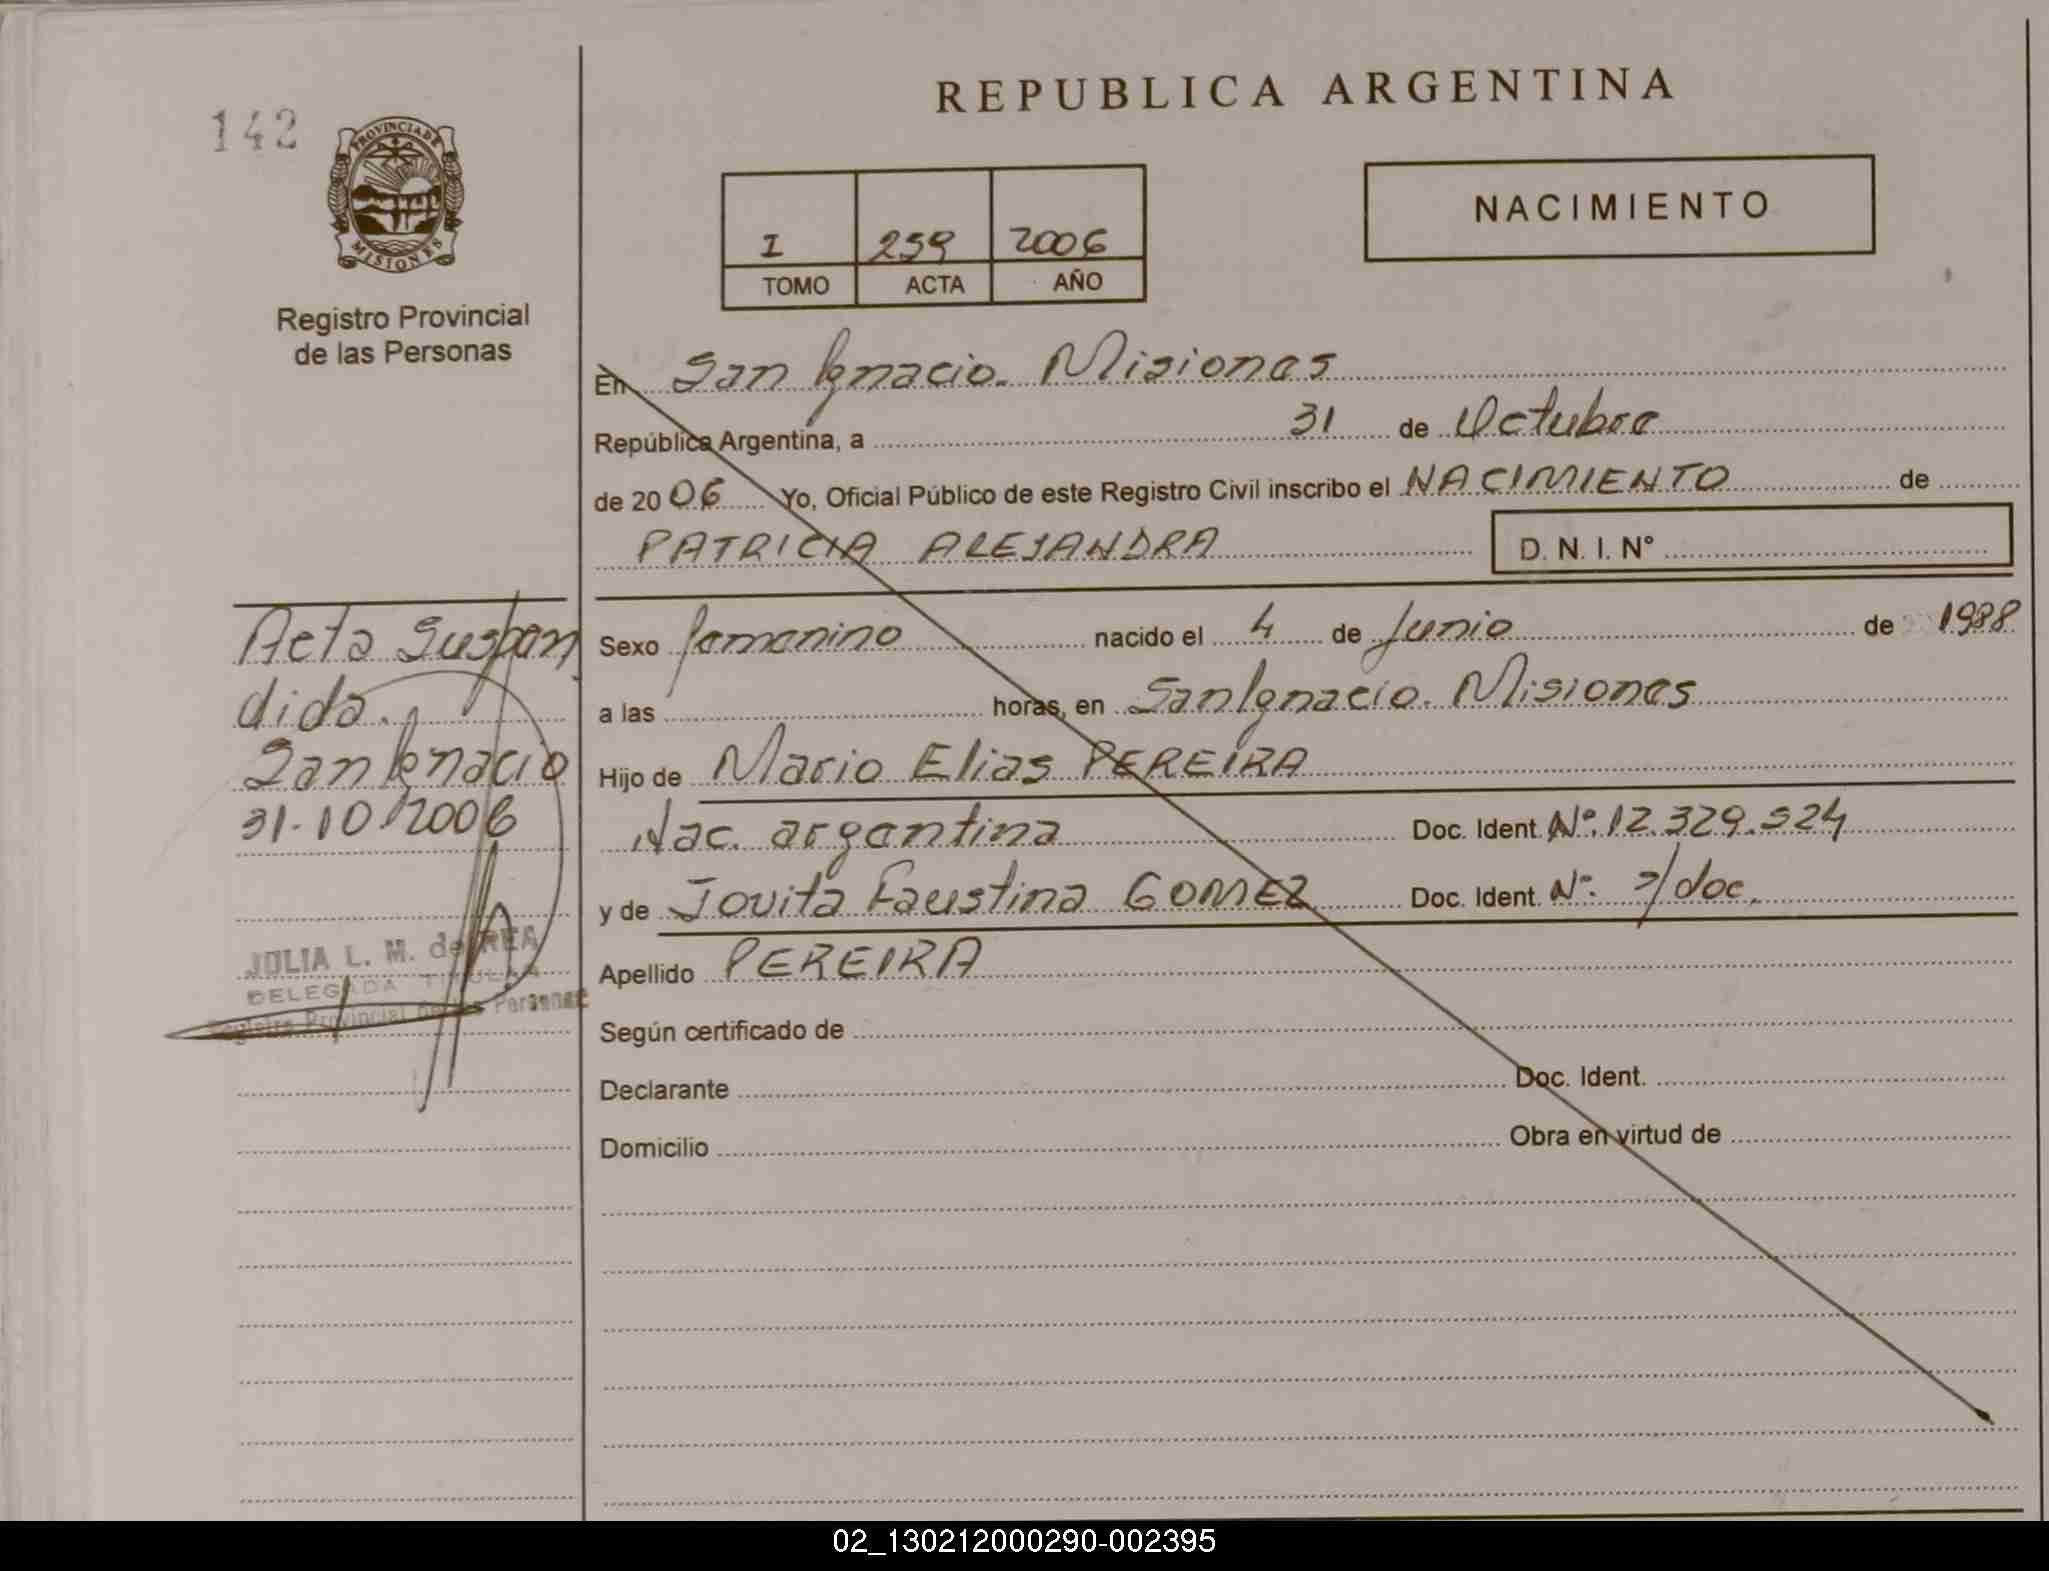 142
PROVINCIA DE
MISIONES
Registro Provincial
de las Personas
REPUBLICA ARGENTINA
I 259 2006
TOMO ACTA AÑO
NACIMIENTO
En San Ignacio. Misiones
República Argentina, a 31 de Octubre
de 2006 Yo, Oficial Público de este Registro Civil inscribo el NACIMIENTO de
PATRICIA ALEJANDRA D. N. I. N°
Sexo femenino nacido el 4 de Junio de 1988
a las horas, en San Ignacio. Misiones
Hijo de Mario Elias PEREIRA
Nac. argentina Doc. Ident. N°. 12.329.524
y de Jovita Faustina GOMEZ Doc. Ident. N°. s/doc.
Apellido PEREIRA
Según certificado de
Declarante Doc. Ident.
Domicilio Obra en virtud de
Acta Suspen
dida.
San Ignacio
31-10-2006
JULIA L. M. de REA
DELEGADA TITULAR
Registro Provincial de las Personas
02_130212000290-002395